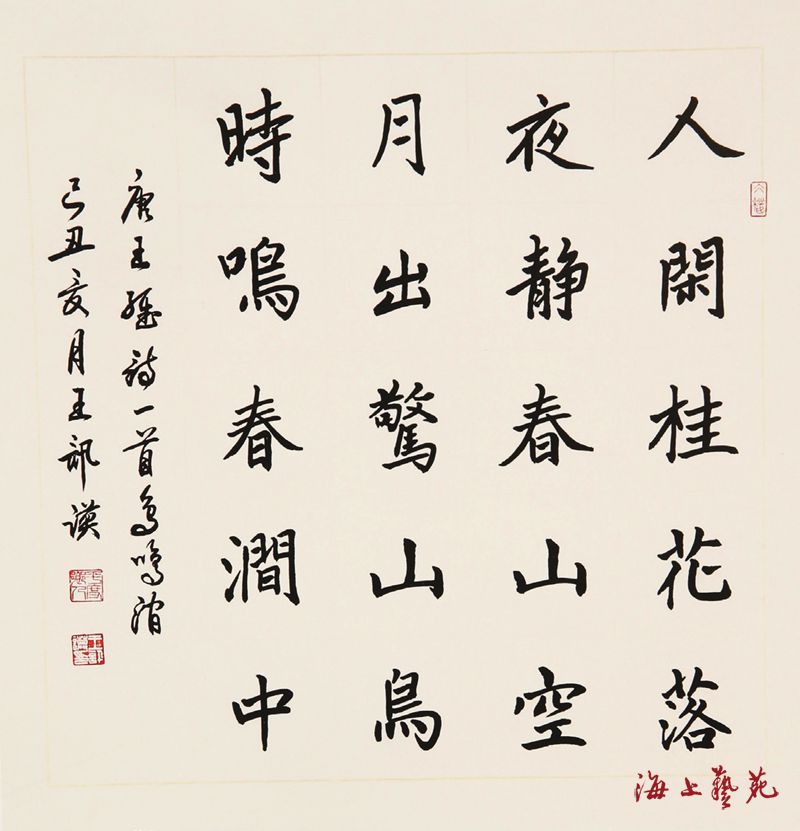 人閑桂花落
夜静春山空
月出驚山鳥
時鳴春澗中
唐王維詩一首鸟鸣涧
己丑亥月王
海上藝苑